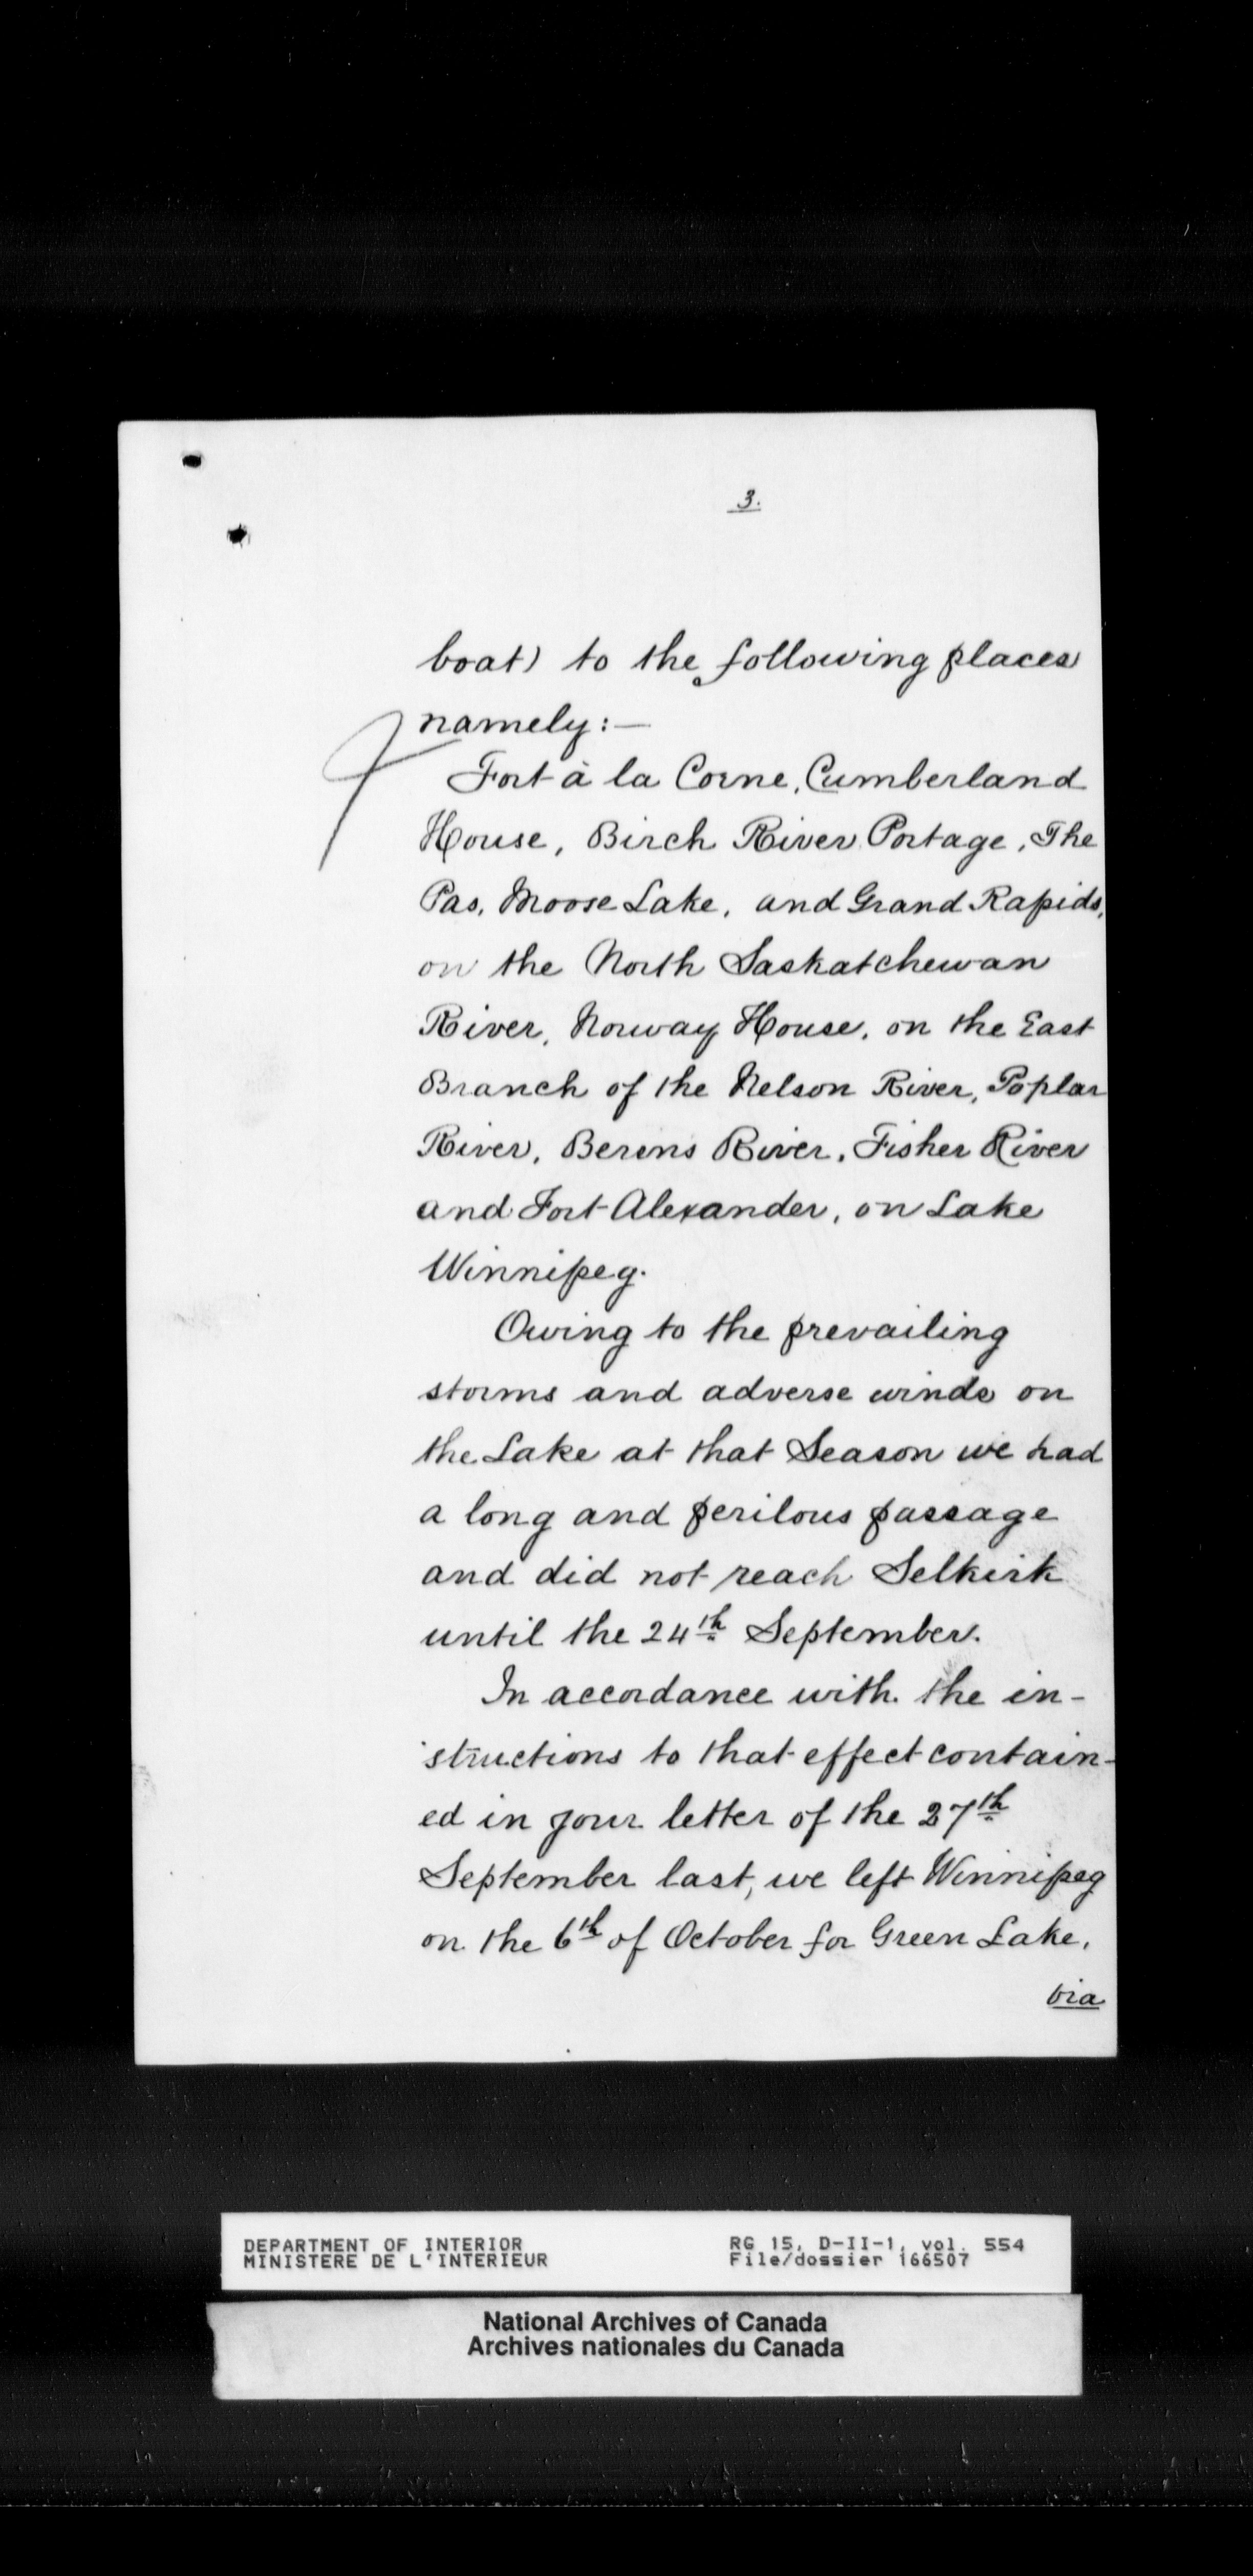 3.
boat) to the following places
namely:—
Fort à la Corne, Cumberland
House, Birch River Portage, The
Pas, Moose Lake, and Grand Rapids,
on the North Saskatchewan
River, Norway House, on the East
Branch of the Nelson River, Poplar
River, Berens River, Fisher River
and Fort Alexander, on Lake
Winnipeg.
Owing to the prevailing
storms and adverse winds on
the Lake at that Season we had
a long and perilous passage
and did not reach Selkirk
until the 24th September.
In accordance with the in-
structions to that effect contain-
ed in your letter of the 27th
September last, we left Winnipeg
on the 6th of October for Green Lake,
via
DEPARTMENT OF INTERIOR RG 15, D-II-1, vol. 554
MINISTERE DE L'INTERIEUR File/dossier 166507
National Archives of Canada
Archives nationales du Canada